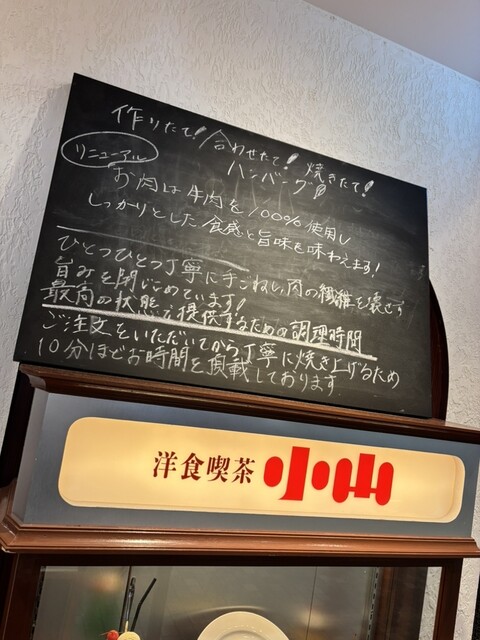 作りたて! 合わせたて! 焼きたて!
リニューアル ハンバーグ
お肉は牛肉を100%使用し
しっかりとした食感と旨味を味わえます!
ひとつひとつ丁寧に手ごねし、肉の繊維を壊さず
旨みを閉じこめています!
最高の状態で提供するための調理時間
ご注文をいただいてから丁寧に焼き上げるため
10分ほどお時間を頂戴しております
洋食喫茶 小山